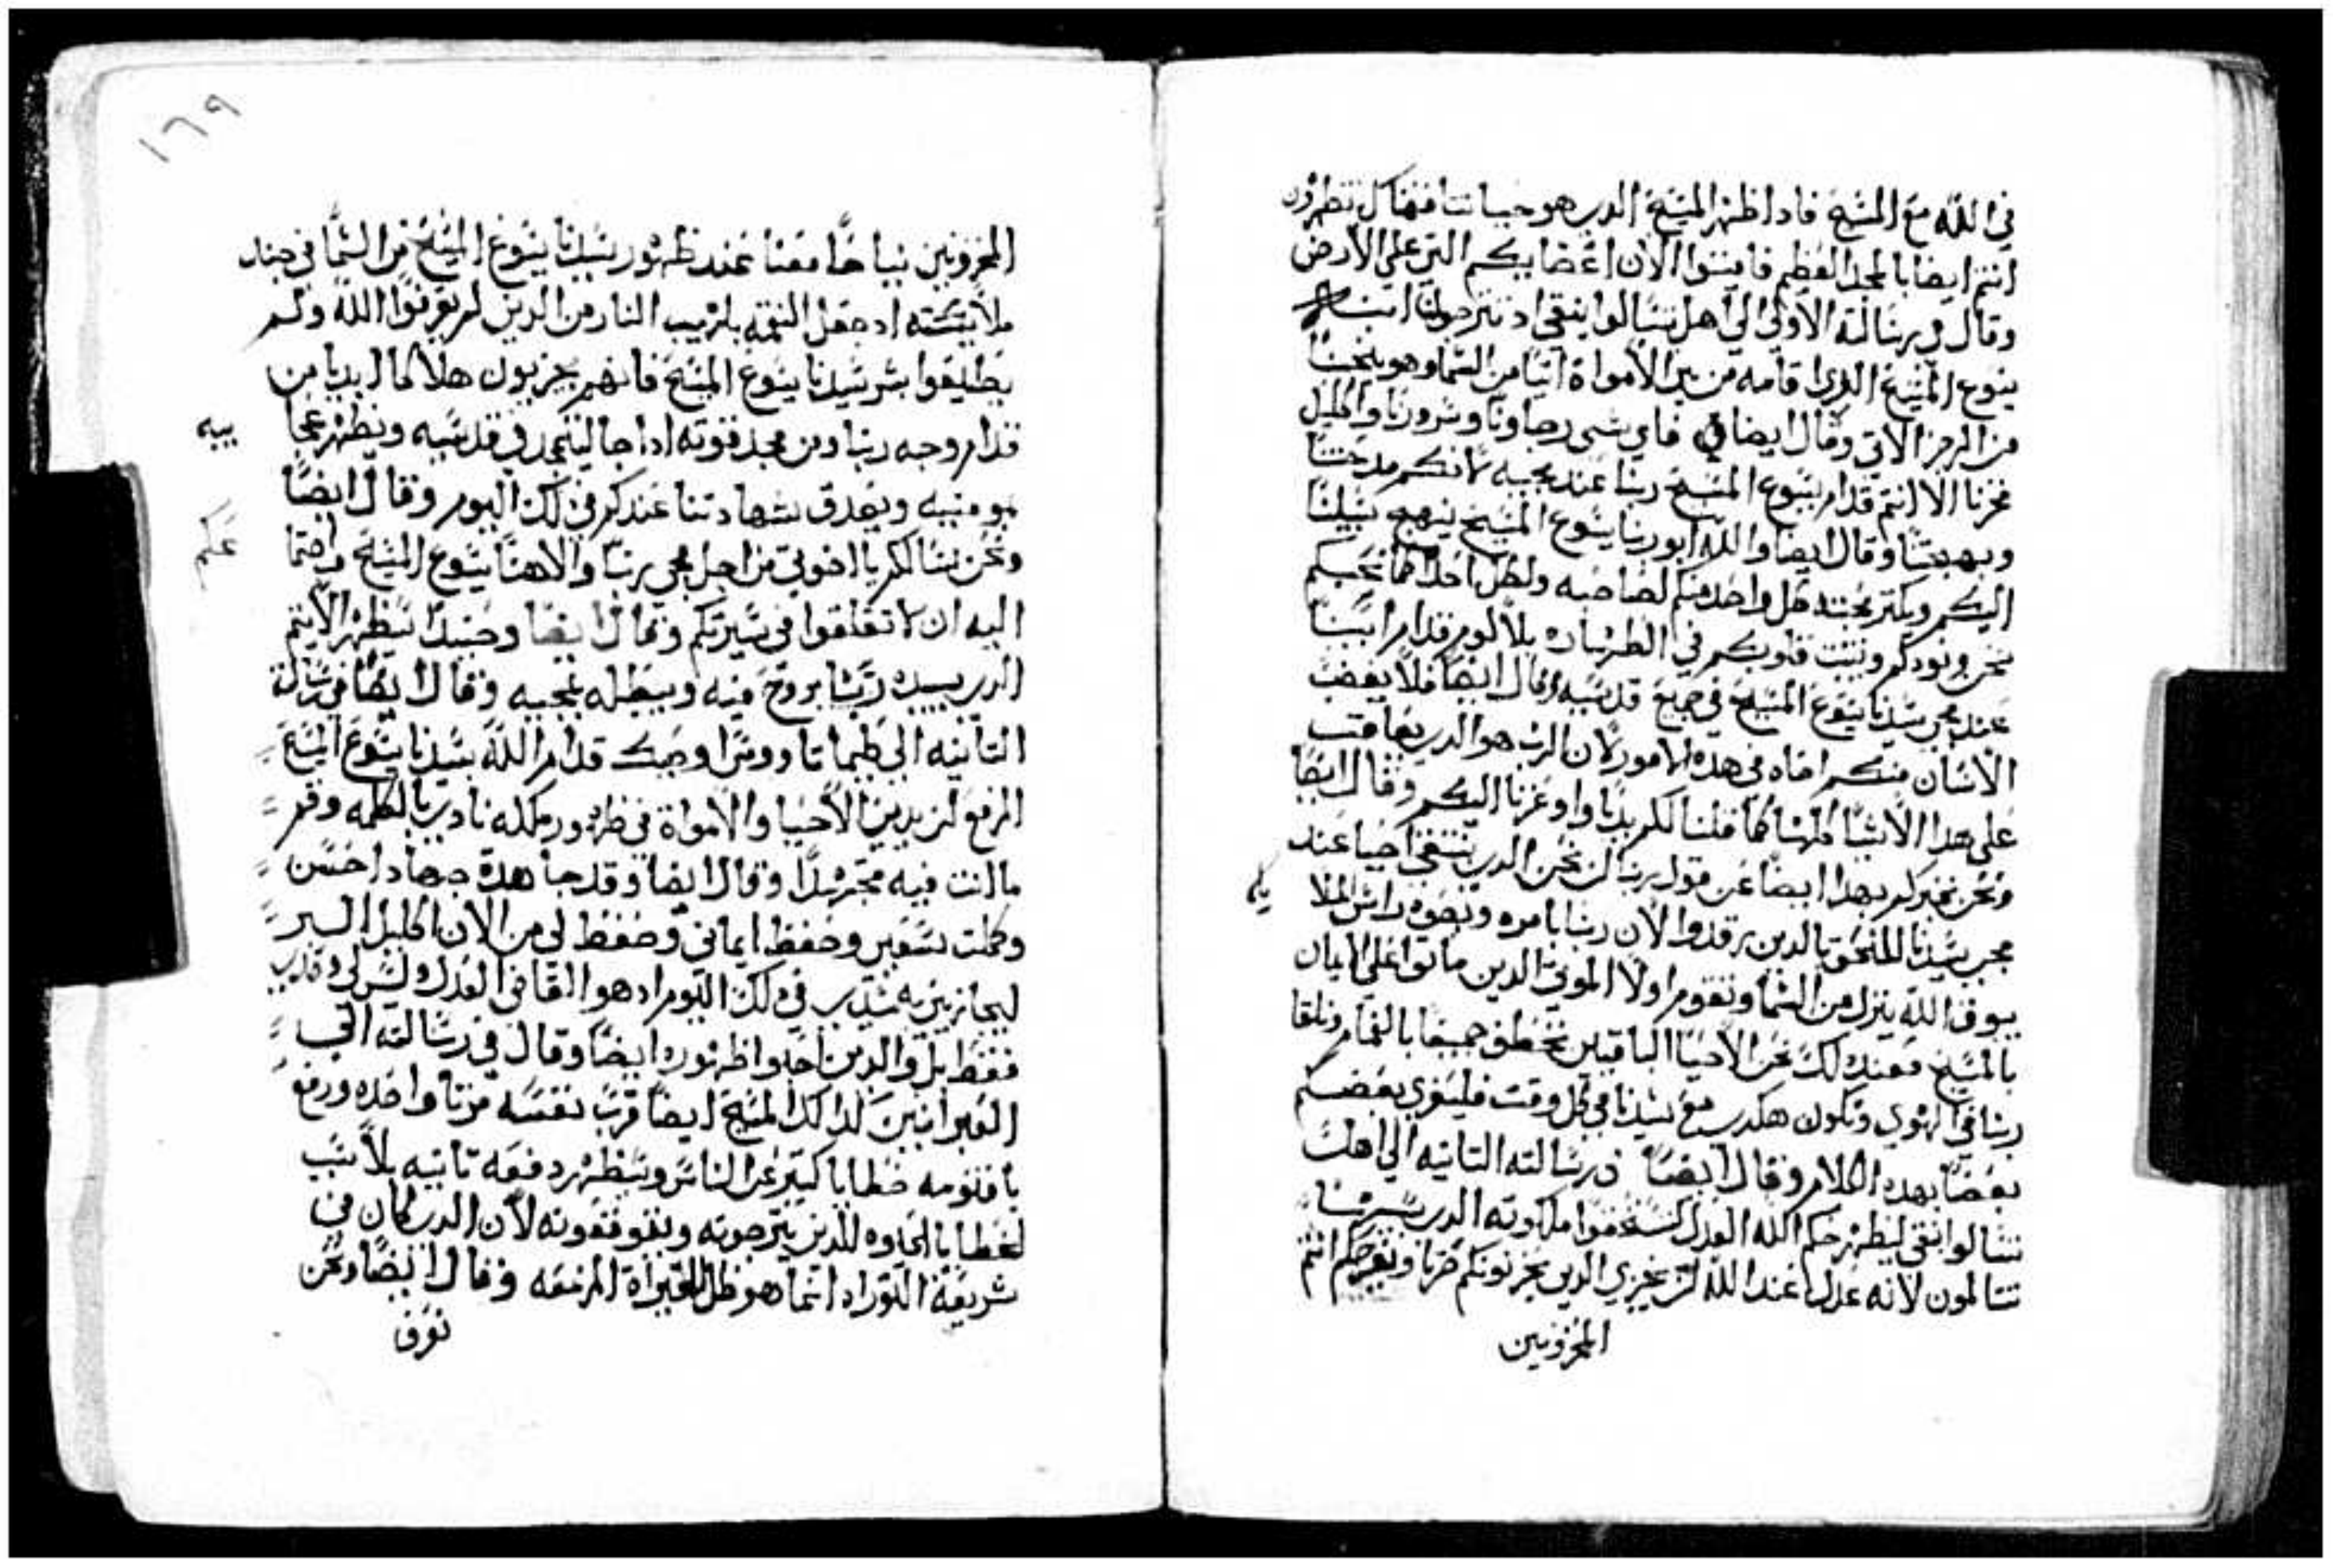 في الله مع المسيح فادا ظهر المسيح الدي هو حياتنا فهناك تظهرون
انتم ايضا بالمجد العظيم فاميتوا الان اعضايكم التي على الارض
وقال في رسالته الاولى الى اهل تسالوا ينقى اد تترجون ابنه
يسوع المسيح الدي اقامه من بين الامواة اتيا من السما وهو ينجينا
من الرجز الاتي وقال ايضا فاي شى رجاونا وسرورنا واكليل
فخرنا الا انتم قدام يسوع المسيح ربنا عند مجيه لانكم مدحتنا
وبهجتنا وقال ايضا والله ابو ربنا يسوع المسيح ينهج سبيلنا
اليكم ويكتر محبته كل واحد منكم لصاحبه ولكل احد كما نحبكم
نحن ونودكم ويتبت قلوبكم في الطهاره بلا لوم قدام ابينا
عند مجي سيدنا يسوع المسيح في جميع قديسيه وقال ايضا فلا يغضب
الانسان منكم اخاه في هده الامور لان الرب هو الدي يعاقب
على هدا الاشيا كلها كما قلنا لكم بديا واوعزنا اليكم وقال ايضا
ونحن نخبركم بهدا ايضا عن قول ربنا ان نحن الدين نتبقى احيا عند
مجي سيدنا لا نلحق بالدين رقدوا لان ربنا بامره وبصوة راس الملا
يكه
ببوق الله ينزل من السما وتقوم اولا الموتى الدين ماتوا على الايمان
بالمسيح فعند دلك نحن الاحيا الباقيين نختطف جميعا بالغمام ونلقا
ربنا في الهوي ونكون هكدي مع سيدنا في كل وقت فليعزي بعضكم
بعضا بهدة الكلام وقال ايضا في رسالته التانيه الى اهل
تسالوا نيقى ليظهر حكم الله العدل لتستحقوا ملكوته الدي بسببها
تتالمون لانه عدل عند الله ان يجزي الدين يحزنونكم حزنا ويفرحكم انتم
المحزونين
١٦٩
المحزونين نياحا معنا عند ظهور سيدنا يسوع المسيح من السما في جند
ملايكته اد جعل النقمه بلهيب النار من الدين لم يعرفوا الله ولم
يطيعوا بشرى سيدنا يسوع المسيح فانهم يجزيون هلاكا ابديا من
قدام وجه ربنا ومن مجد قوته ادا جا ليتمجد في قديسيه ويظهر عجا
يبه
بمومنيه ويصدق شهادتنا عندكم في دلك اليوم وقال ايضا
ونحن نسالكم يا اخوتي من اجل مجي ربنا والاهنا يسوع المسيح واجتما
عكم
اليه ان لا تقلقوا في سيرتكم وقال ايضا وحينيد سيظهر الاتيم
الدي يبيده ربنا بروح فيه ويبطله بمجيه وقال ايضا في رسالة
التانيه الى طيماتاووس اوصيك قدام الله سيدنا يسوع المسيح
المزمع ان يدين الاحيا والامواة في ظهور ملكه نادي بالكلمه وقم
ما انت فيه مجتهدا وقال ايضا وقد جاهدة جهادا حسن
وكملت سعيي وحفظ ايماني وحفظ لي من الان اكليل البر
ليجازيني به سيدي في دلك اليوم اد هو القاضي العدل وليس لي وحدي
فقط بل والدين احبوا ظهوره ايضا وقال في رسالته الى
العبرانيين لدالك المسيح ايضا قرب نفسه مرتا واحده ورفع
باقنومه خطايا كتير عن الناس وسيظهر دفعه تانيه بلا سبب
لخطايا لحياوه للدين يترجونه ويتوقعونه لان الدي كان في
شريعة التوراه انما هو ظل الخيراة المزمعه وقال ايضا ونحن
نعرف